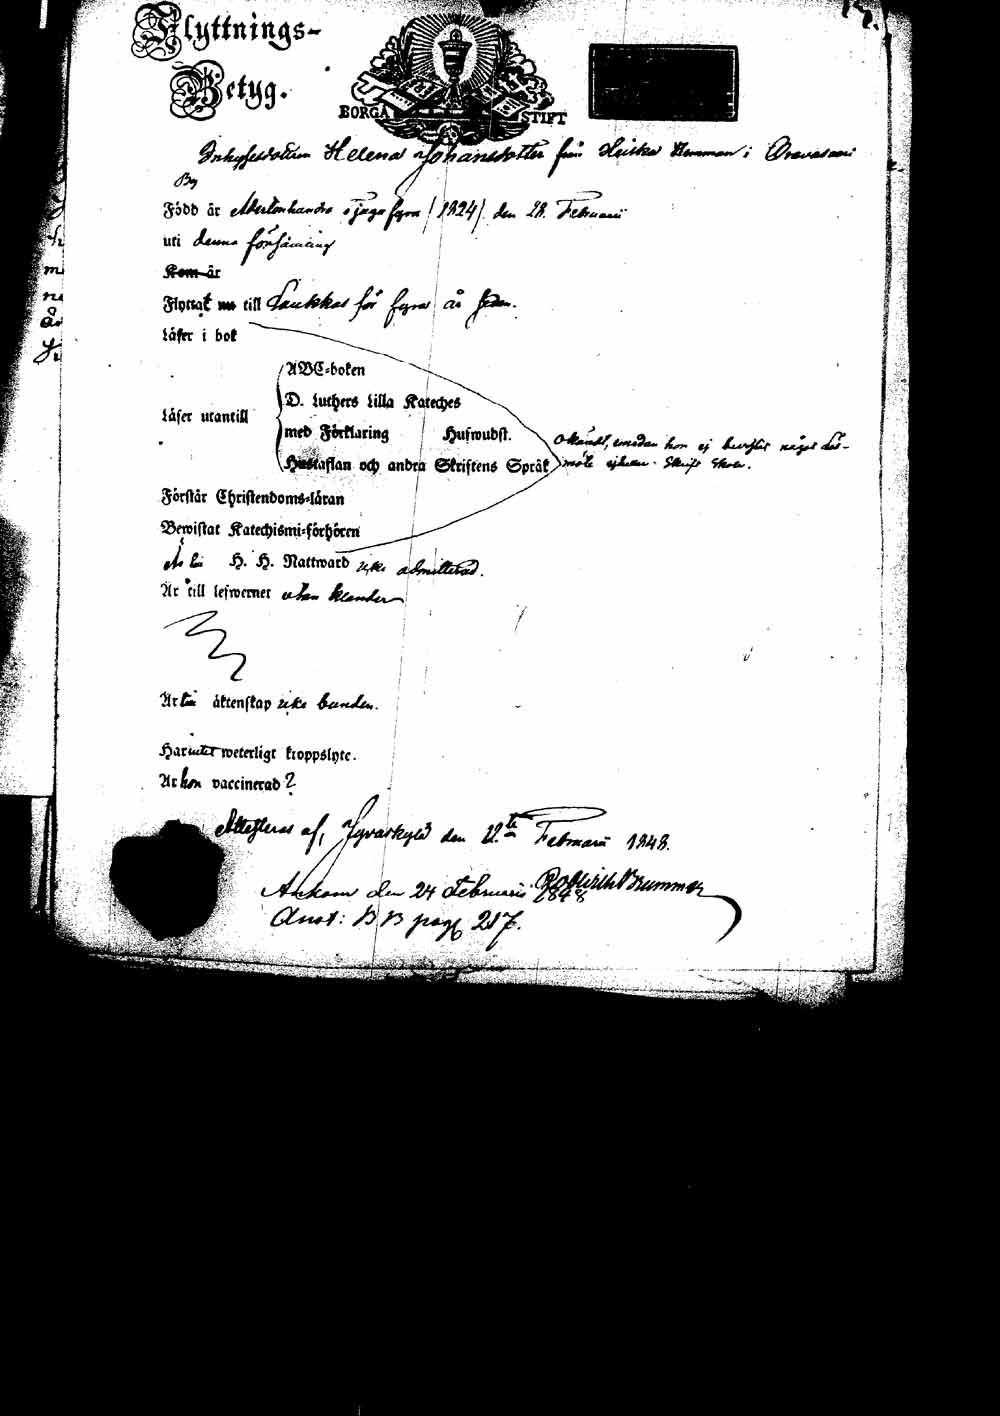 17.
Flyttnings-
Betyg.
BORGÅ STIFT
Inhysesdottren Helena Johansdotter från Heiska Hemman i Oravasaari
By
Född år Adertonhundra tjugufyra (1824) den 28. Februarii
uti denna församling
Kom år
Flyttat nu till Laukkas för fyra år sedan.
Läser i bok
ABC-boken
D. Luthers Lilla Kateches
Läser utantill
med Förklaring Hufwudst.
Hustaflan och andra Skriftens Språk
okändt, emedan hon ej bevistat något Läs-
möte ejheller Skrift Skola.
Förstår Christendoms-läran
Bewistat Katechismi-förhören
Är till H. H. Nattward icke admitterad.
Är till lefwernet utan klander
Är till äktenskap icke bunden.
Har intet weterligt kroppslyte.
Är hon vaccinerad?
Attesteras af, Jyväskylä den 12.te Februarii 1848.
Ankom den 24 Februarii 1848
Anot: BB pag 217.